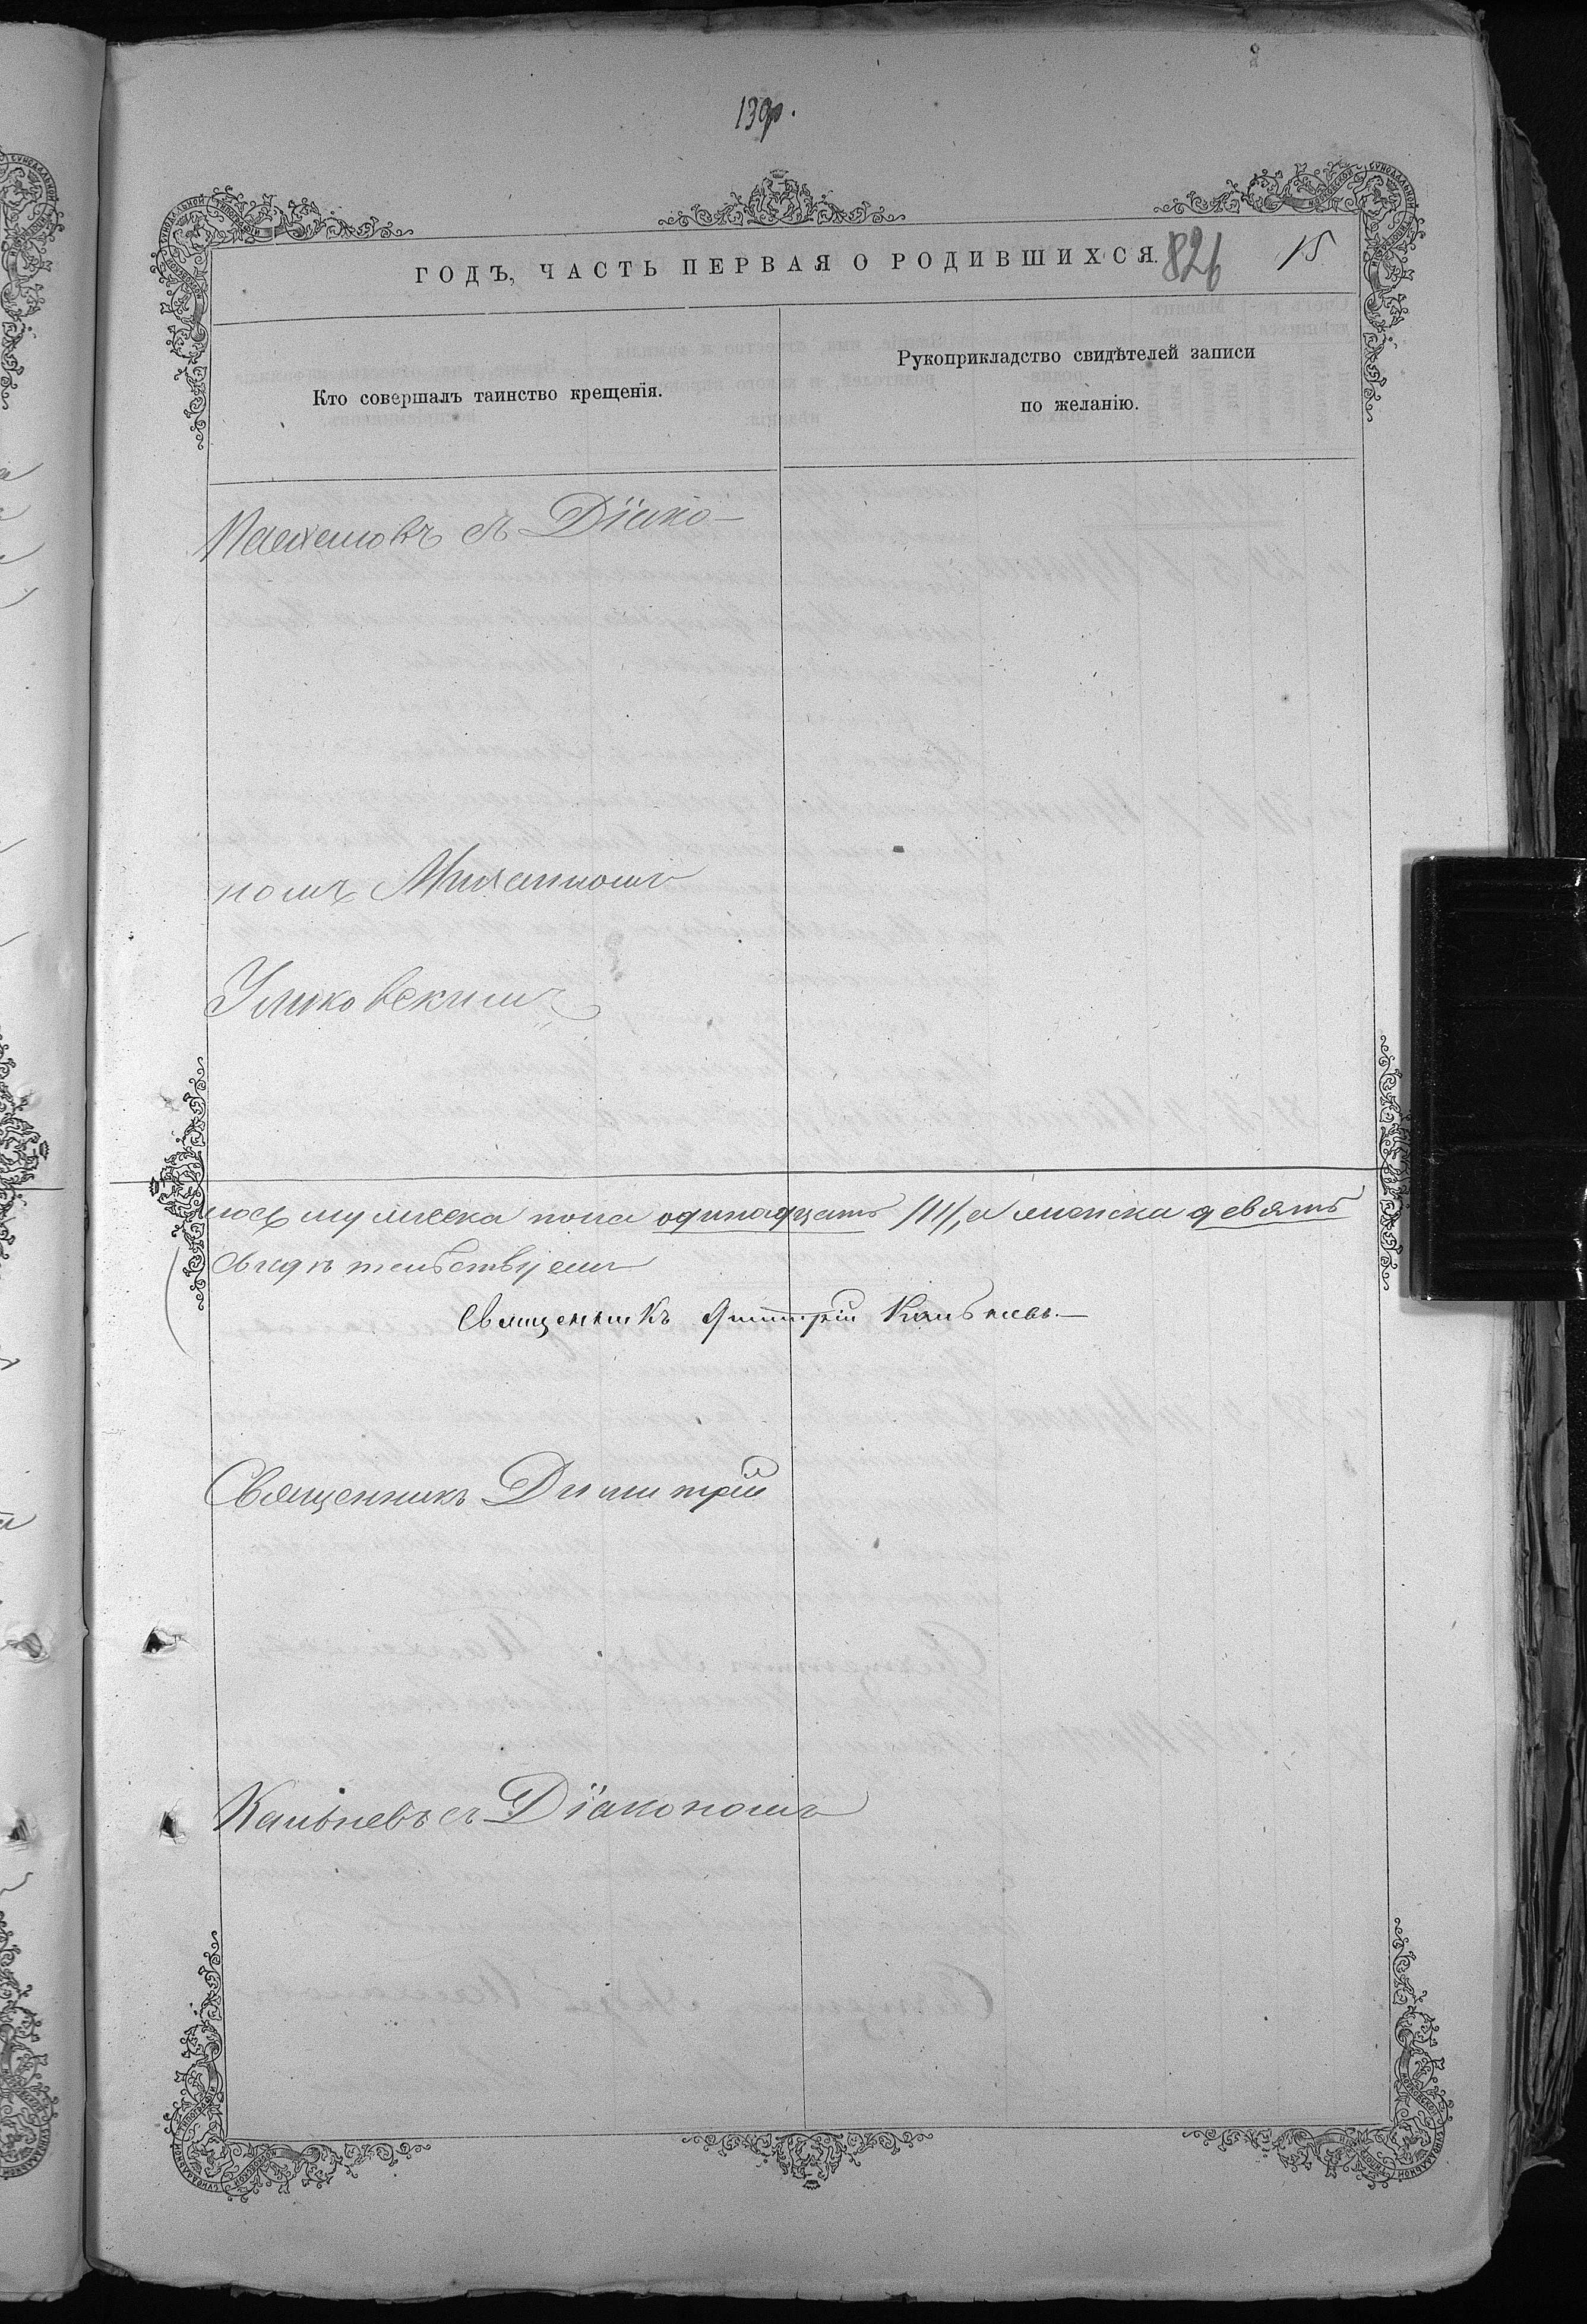 139р.
ГОДЪ, ЧАСТЬ ПЕРВАЯ О РОДИВШИХСЯ.
826
15
Кто совершалъ таинство крещенія.
Рукоприкладство свидѣтелей записи
по желанію.
съ Діако-
номъ Михаиломъ
лось мужеска пола одинадцать /11/, а женска девять
свидѣтельствуемъ
Священникъ Димитрій Кальневъ
Священникъ Димитрій
Кальневъ съ Діакономъ